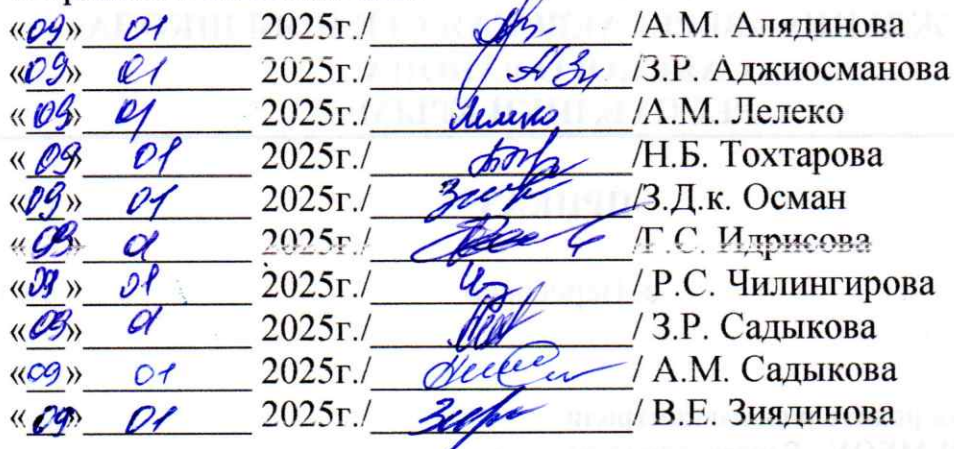 «09» 01 2025г./ /А.М. Алядинова
«09» 01 2025г./ /З.Р. Аджиосманова
«09» 01 2025г./ Лелеко /А.М. Лелеко
«09» 01 2025г./ /Н.Б. Тохтарова
«09» 01 2025г./ /З.Д.к. Осман
«09» 01 2025г./ /Г.С. Идрисова
«09» 01 2025г./ / Р.С. Чилингирова
«09» 01 2025г./ / З.Р. Садыкова
«09» 01 2025г./ / А.М. Садыкова
«09» 01 2025г./ / В.Е. Зиядинова